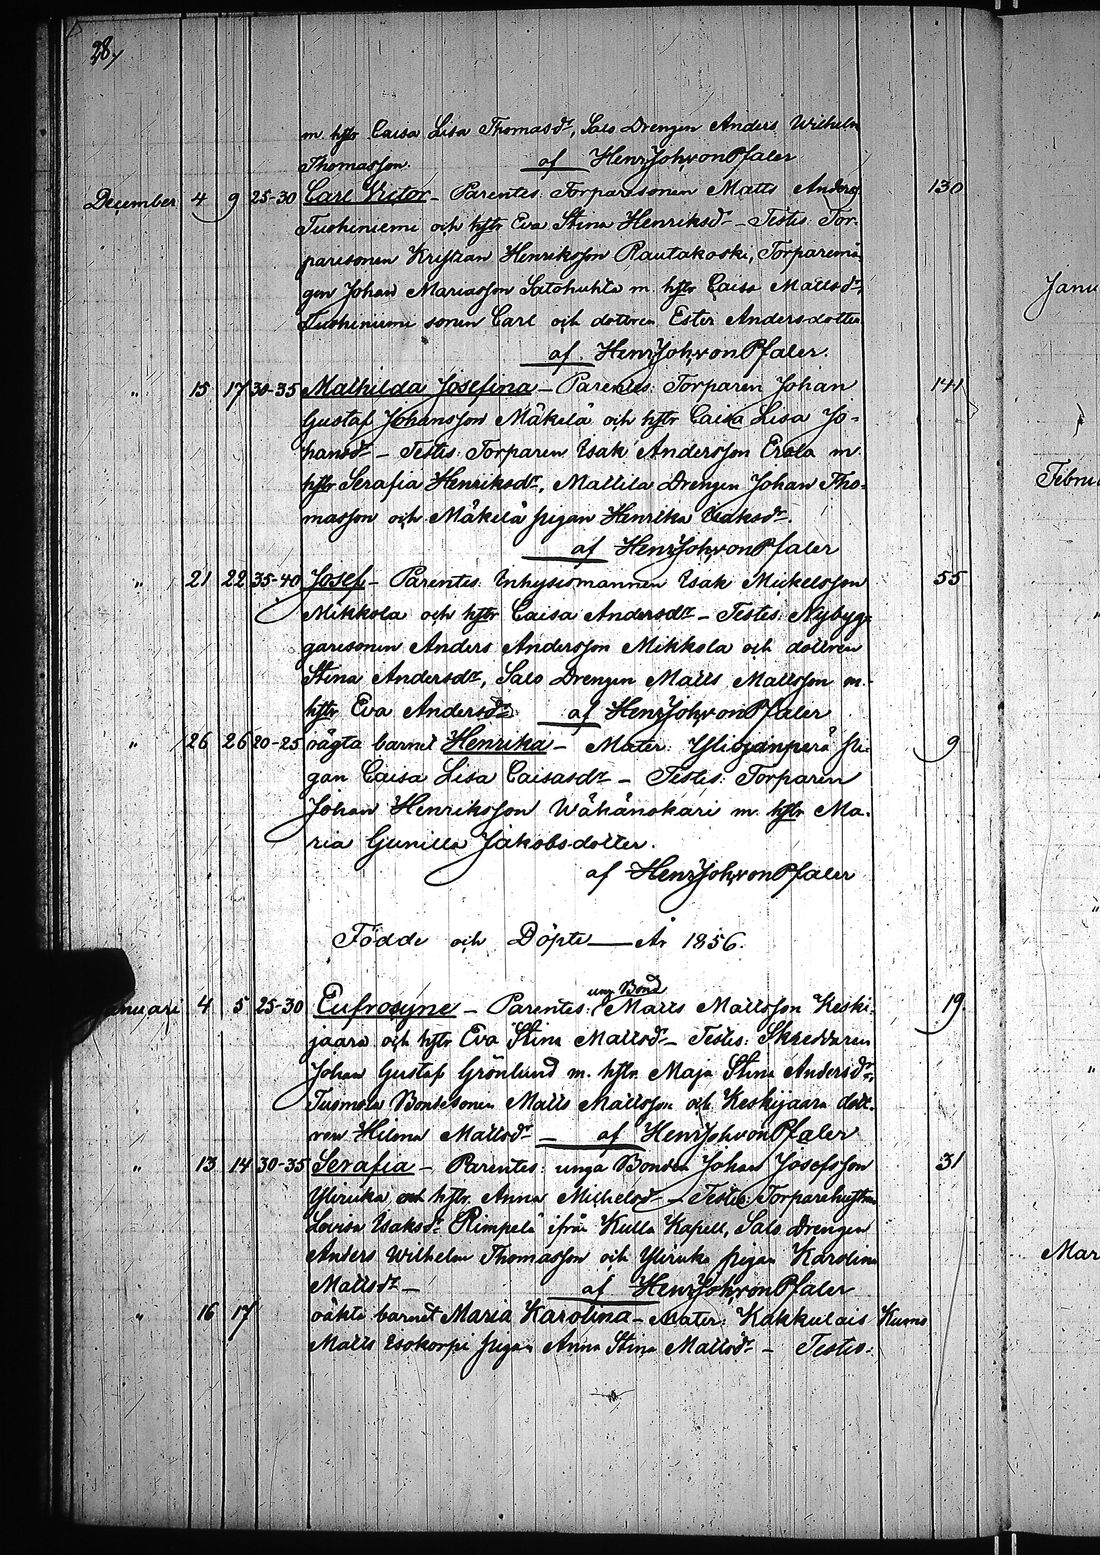 28,
m. hstr Caisa Lisa Thomasdr, Salo Drengen Anders Wilhelm
Thomasson. af HenrJohvonPfaler
December 4 9 25-30 Carl Victor - Parentes: Torparesonen Matts Anders
Tuohiniemi och hstr Eva Stina Henriksdr - Testes: Tor-
paresonen Kristian Henriksson Rautakoski, Torparemå
gen Johan Mariasson Satohuhta m. hstr Caisa Mattsdr,
Tuohiniemi sonen Carl och dottren Ester Andersdotter
af. HenrJohvonPfaler.
130
" 15 17 30-35 Mathilda Josefina - Parentes: Torparen Johan
Gustaf Johansson Mäkelä och hstr Caisa Lisa Jo-
hansdr - Testes: Torparen Isak Andersson Erola m
hstr Serafia Henriksdr, Mattila Drengen Johan Tho-
masson och Mäkelä pigan Henrika Isaksdr.
af HenrJohvonPfaler
141
" 21 22 35-40 Josef - Parentes: Inhysesmannen Isak Mickelsson
Mikkola och hstr Caisa Andersdr - Testes: Nybyg-
garesonen Anders Andersson Mikkola och dottren
Stina Andersdr, Salo Drengen Matts Mattsson m.
hstr Eva Andersdr af HenrJohvonPfaler
55
" 26 26 20-25 oägta barnet Henrika - Mater: Yliojanperä pi-
gan Caisa Lisa Caisasdr - Testes: Torparen
Johan Henriksson Wähänokari m. hstr Ma-
ria Gunilla Jakobsdotter.
af HenrJohvonPfaler
9
Födde och Döpte — År 1856.
Januari 4 5 25-30 Eufrosyne - Parentes: ung Bond Matts Mattsson Keski-
jaara och hstr Eva Stina Mattsdr - Testes: Skreddaren
Johan Gustaf Grönlund m. hstr Maja Stina Andersdr,
Tuomola Bondesonen Matts Mattsson och Keskijaara dott-
ren Hilena Mattsdr - af HenrJohvonPfaler
19.
" 13 14 30-35 Serafia - Parentes: unga Bonden Johan Josefsson
Yliruka och hstr Anna Michelsdr - Testes: Torparehustrun
Lovisa Isaksdr Rimpelä ifrån Kulla Kapell, Salo Drengen
Anders Wilhelm Thomasson och Yliruka pigan Karolina
Mattsdr - af HenrJohvonPfaler
31
" 16 17 oäkta barnet Maria Karolina - Mater: Kakkulais Kumo
Matts Isokorpi pigan Anna Stina Mattsdr - Testes:
Janu
Febru
Mar